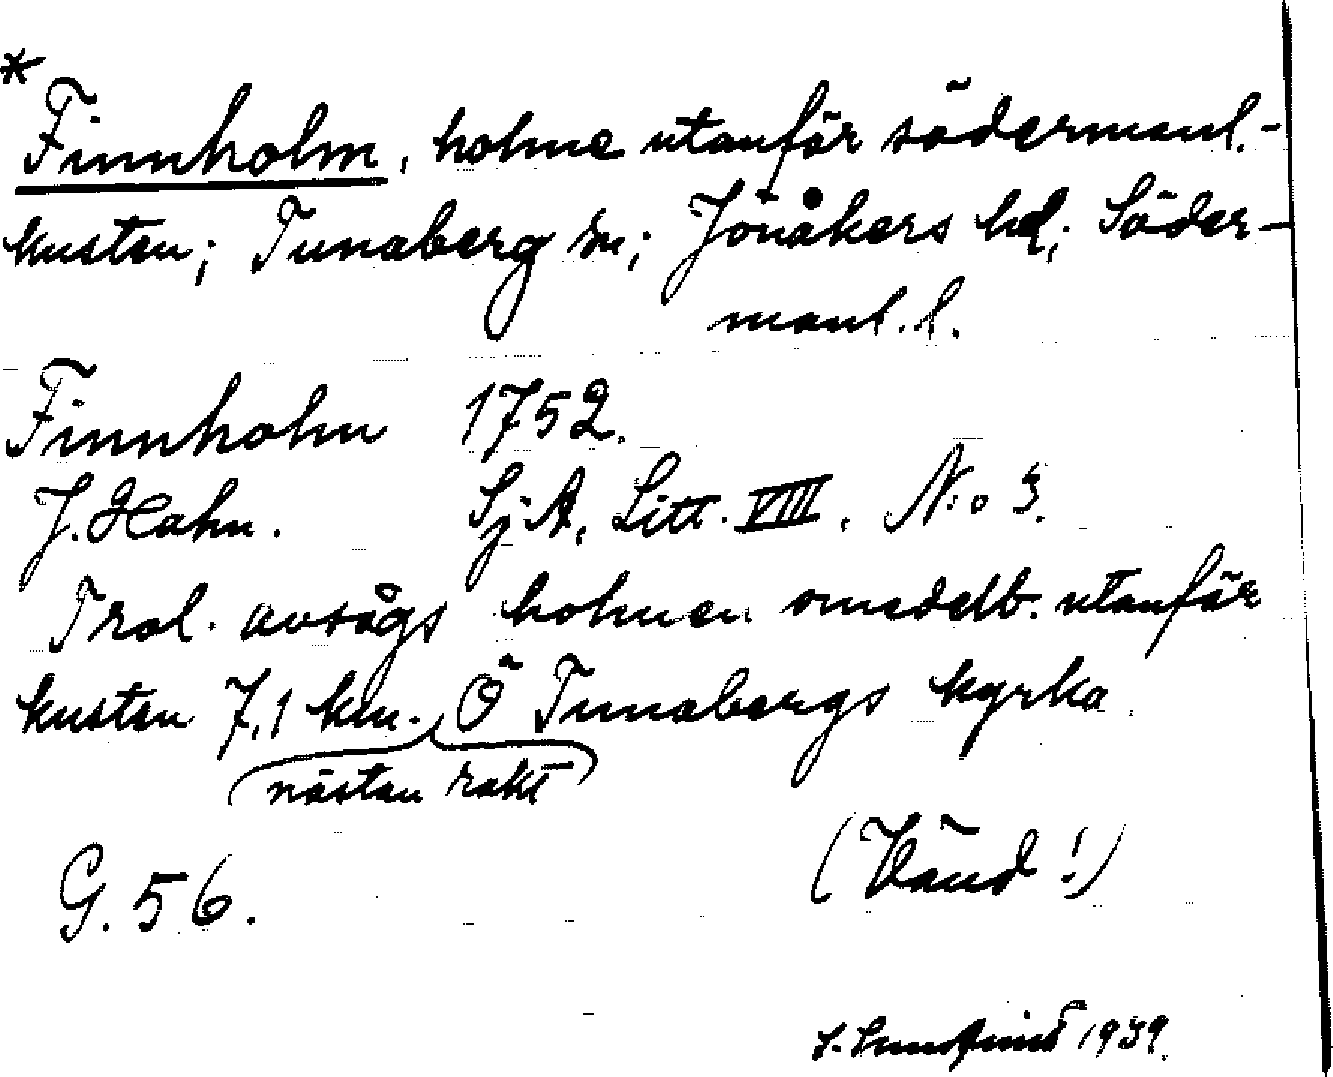 *
Finnholm, holme utanför södermanl.-
kusten; Tunaberg sn; Jönåkers hd; Söder-
manl. l.
Finnholm 1752.
J. Hahn. SjA, Litt. VIII. N:o 3.
Trol. avsågs holmen omedelb. utanför
kusten 7,1 km. Ö Tunabergs kyrka.
nästan rakt
G. 56. (Vänd!)
Lundquist 1939.